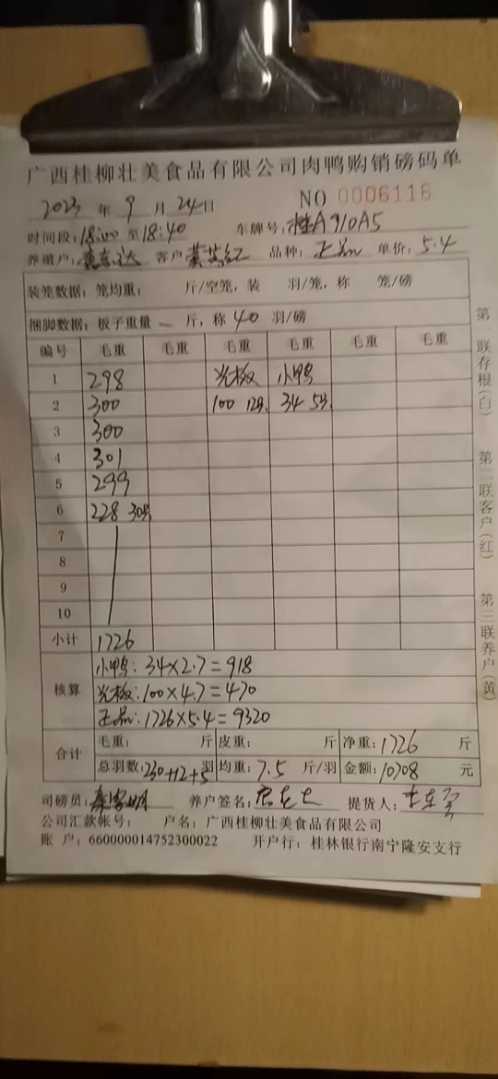 广西桂柳壮美食品有限公司肉鸭购销磅码单
2023 年 9 月 24日 NO 0006116
时间段:18:00 至18:40 车牌号:桂A910A5
养殖户: 客户 黄 红 品种: 正品 单价: 5.4
装笼数据: 笼均重: 斤/空笼, 装 羽/笼, 称 笼/磅
捆脚数据: 板子重量 — 斤, 称 40 羽/磅
编号 毛重 毛重 毛重 毛重 毛重 毛重
1 298 光板 小鸭
2 300 100 12羽 34 5羽
3 300
4 301
5 299
6 228 30羽
7
8
9
10
小计 1726
核算
小鸭: 34×2.7=918
光板: 100×4.7=470
正品: 1726×5.4=9320
合计
毛重: 斤 皮重: 斤 净重: 1726 斤
总羽数: 230+12+5 羽 均重: 7.5 斤/羽 金额: 10708 元
司磅员: 养户签名: 提货人:
公司汇款帐号: 户名: 广西桂柳壮美食品有限公司
账 户: 660000014752300022 开户行: 桂林银行南宁隆安支行
第一联存根(白) 第二联客户(红) 第三联养户(黄)